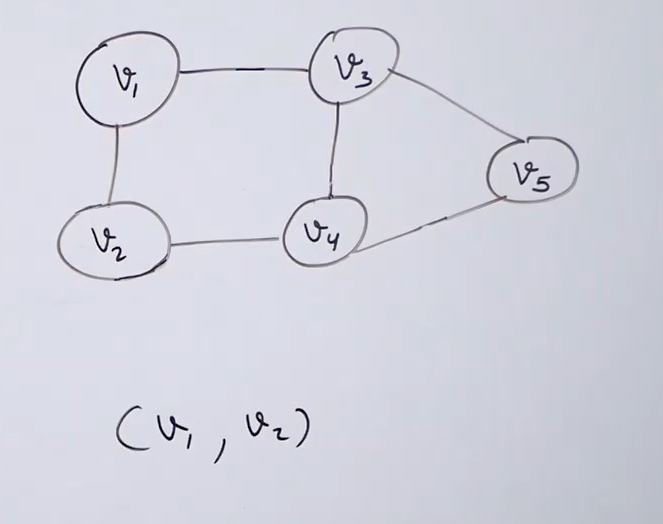 v₁ v₃
v₅
v₂ v₄
(v₁, v₂)